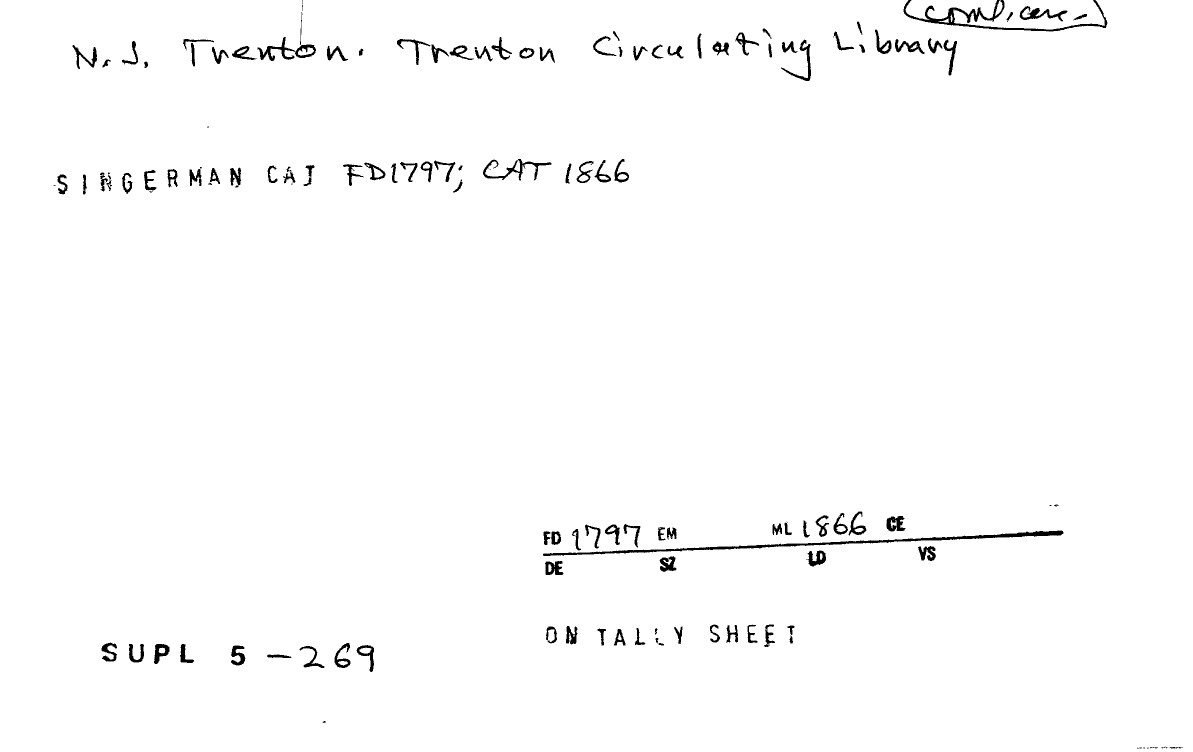 N.J. Trenton. Trenton Circulating Library
SINGERMAN CAJ FD1797; CAT 1866
FD 1797 EM ML 1866 CE
DE SZ LD VS
ON TALLY SHEET
SUPL 5 - 269